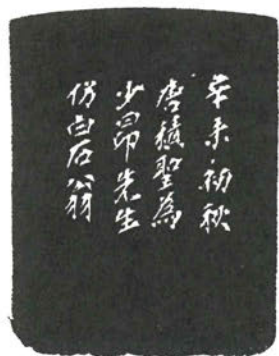 辛未初秋
唐積聖為
少昂先生
仿白石翁